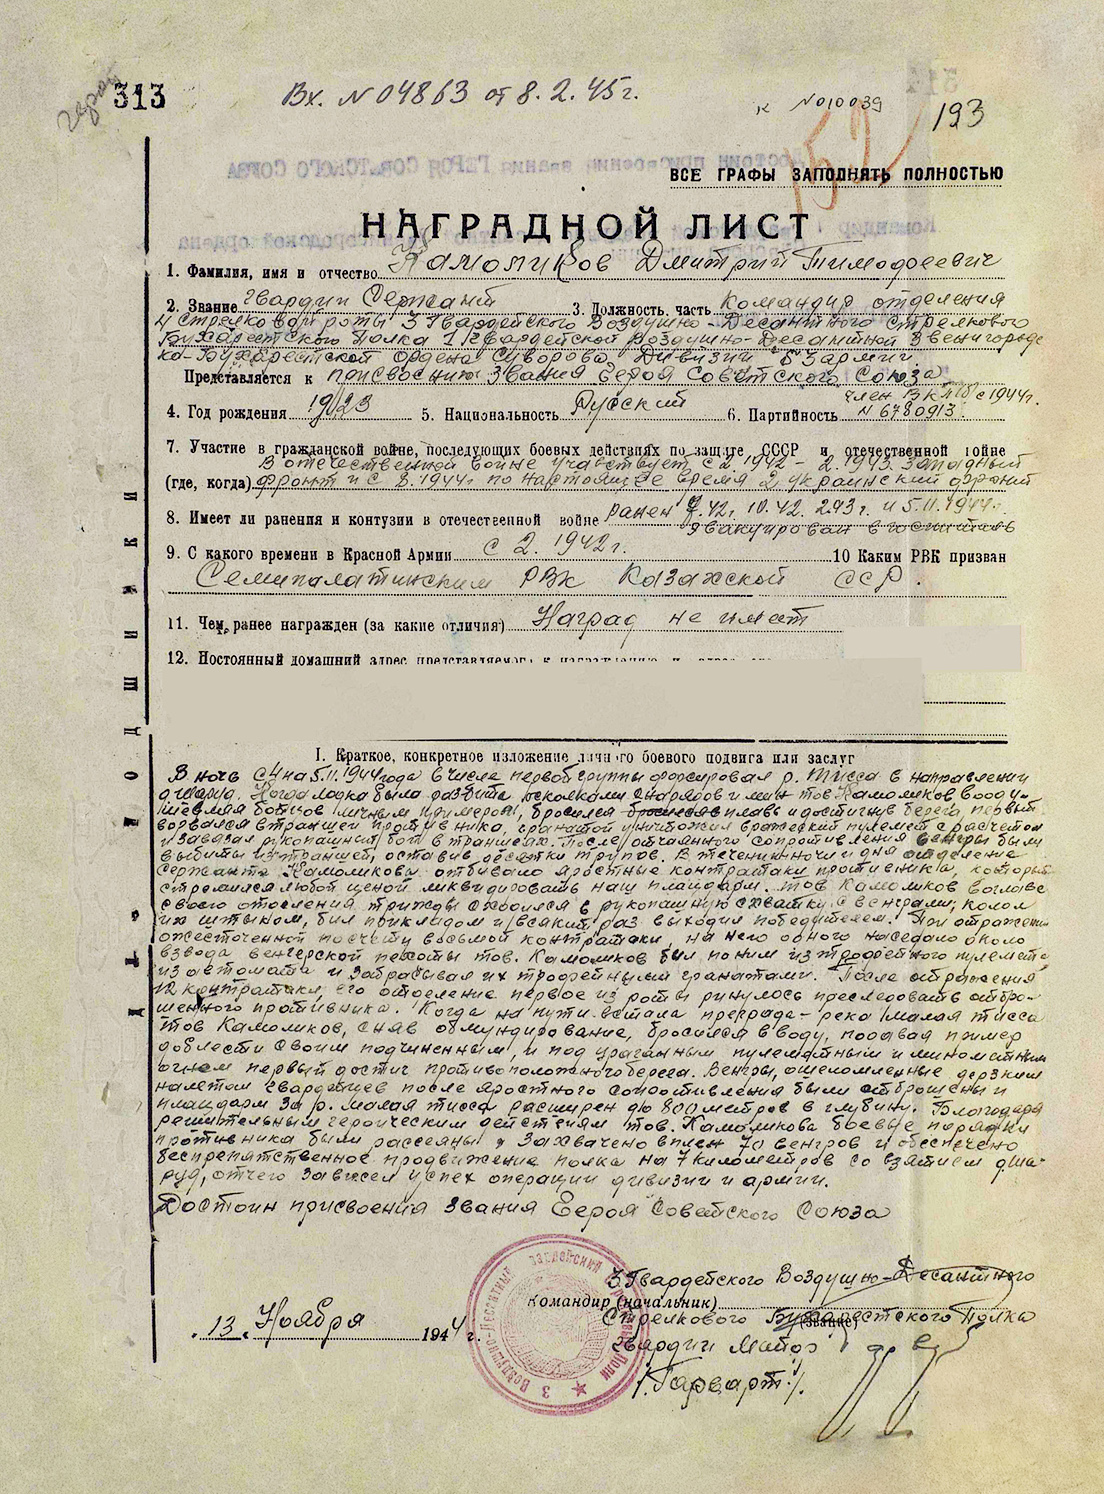 313
герой
Вх. №04863 от 8.2.45г.
к №010039
193
152
ВСЕ ГРАФЫ ЗАПОЛНЯТЬ ПОЛНОСТЬЮ
НАГРАДНОЙ ЛИСТ
1. Фамилия, имя и отчество Камоликов Дмитрий Тимофеевич
2. Звание Гвардии Сержант 3. Должность, часть Командир отделения
4 стрелковой роты 3 Гвардейского Воздушно-Десантного стрелкового
Бухарестского Полка 1 Гвардейской Воздушно-Десантной Звенигородс
ко-Бухарестской ордена Суворова Дивизии 53 армии
Представляется к присвоению звания Героя Советского Союза
4. Год рождения 1923 5. Национальность Русский 6. Партийность член ВКПб с 1944г.
N 6780913.
7. Участие в гражданской войне, последующих боевых действиях по защите СССР и отечественной войне
В отечественной войне участвует с 2.1942 - 2.1943. Западный
(где, когда) фронт и с 8.1944г по настоящее время 2 украинский фронт
8. Имеет ли ранения и контузии в отечественной войне ранен 7.42г. 10.42. 2.43г. и 5.11.1944г.
эвакуирован в госпиталь
9. С какого времени в Красной Армии с 2. 1942г. 10 Каким РВК призван
Семипалатинским РВК Казахской ССР.
11. Чем, ранее награжден (за какие отличия) Наград не имеет
12. Постоянный домашний адрес представляемого к награждению и адрес
I. Краткое, конкретное изложение личного боевого подвига или заслуг
В ночь с 4 на 5.11.1944 года в числе первой группы форсировал р. Тисса в направлении
д Шаруд. Когда лодка была разбита осколками снарядов и мин тов. Камоликов вооду-
шевляя бойцов личным примером, бросился бросился вплавь и достигнув берега, первый
ворвался в траншеи противника, гранатой уничтожил вражеский пулемет с расчетом
и завязал рукопашный бой в траншеях. После отчаянного сопротивления венгры были
выбиты из траншей, оставив десятки трупов. В течении ночи и дня отделение
Сержанта Камоликова отбивало яростные контратаки противника, который
стремился любой ценой ликвидировать наш плацдарм. Тов Камоликов во главе
своего отделения трижды сходился в рукопашную схватку с венграми, колол
их штыком, бил прикладом и всякий раз выходил победителем. При отражении
ожесточенной по счету восьмой контратаки, на него одного наседало около
взвода венгерской пехоты тов. Камоликов бил по ним из трофейного пулемета
из автомата и забрасывал их трофейными гранатами. После отражения
12 контратаки, его отделение первое из роты ринулось преследовать отбро-
шенного противника. Когда на пути встала преграда - река Малая Тисса
тов Камоликов, сняв обмундирование, бросился в воду, подавая пример
доблести своим подчиненным, и под ураганным пулеметным и минометным
огнем первый достиг противоположного берега. Венгры, ошеломленные дерзким
налетом гвардейцев после яростного сопротивления были отброшены и
плацдарм за р. Малая Тисса расширен до 800 метров в глубину. Благодаря
решительным героическим действиям тов. Камоликова боевые порядки
противника были рассеяны, захвачено в плен 70 венгров и обеспечено
беспрепятственное продвижение полка на 7 километров со взятием д Ша-
руд, от чего зависел успех операции дивизии и армии.
Достоин присвоения звания Героя Советского Союза
3 Гвардейского Воздушно-Десантного
Командир (начальник)
Стрелкового Бухарестского Полка
(звание)
Гвардии Майор
/Гарварт/
.13. Ноября 1944г.